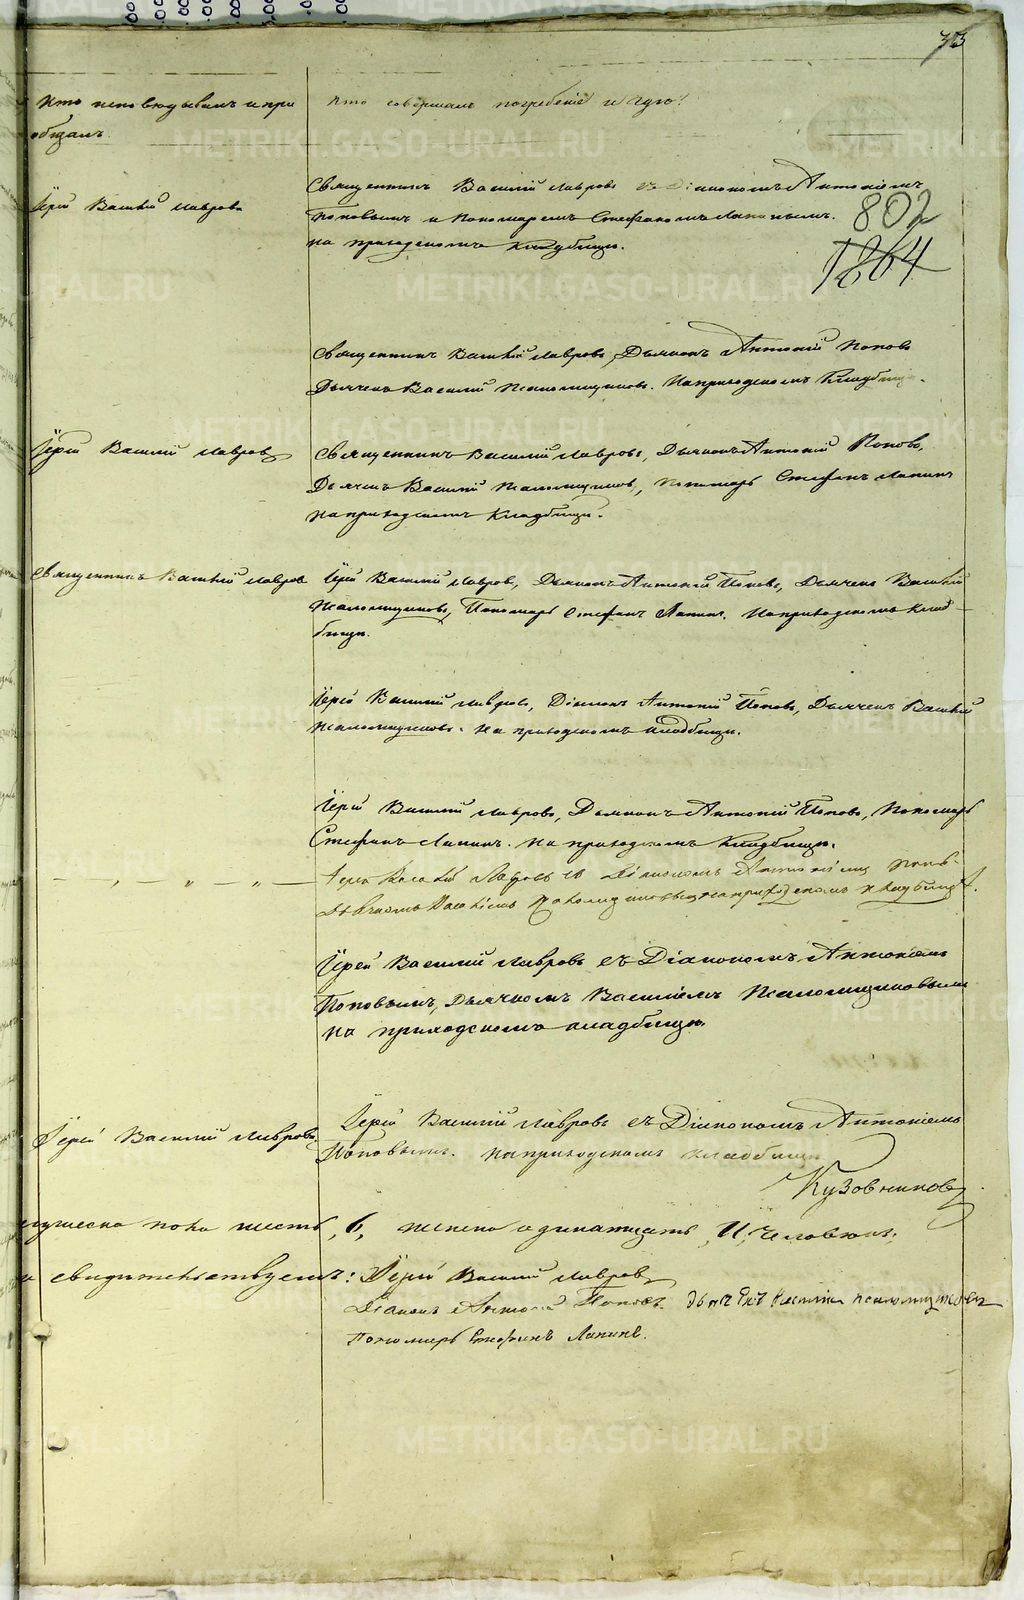 33
Кто исповѣдывалъ и прі
общалъ.
Кто совершалъ погребеніе и гдѣ?
Іерей Василій Лавровъ
Священникъ Василій Лавровъ съ Діакономъ Антоніемъ
Поповымъ и Пономаремъ Стефаномъ Лапинымъ.
на приходскомъ кладбищѣ.
802
1864
Священникъ Василій Лавровъ, Дьяконъ Антоній Поповъ
Дьячекъ Василій Псаломщиковъ. На приходскомъ Кладбищѣ.
Іерей Василій Лавровъ
Священникъ Василій Лавровъ, Дьяконъ Антоній Поповъ,
Дьячекъ Василій Псаломщиковъ, Пономарь Стефанъ Лапинъ
На приходскомъ Кладбищѣ.
Священникъ Василій Лавровъ
Іерей Василій Лавровъ, Дьяконъ Антоній Поповъ, Дьячекъ Василій
Псаломщиковъ, Пономарь Стефанъ Лапинъ. На приходскомъ клад-
бищѣ.
Іерей Василій Лавровъ, Діаконъ Антоній Поповъ, Дьячекъ Василій
Псаломщиковъ. На приходскомъ кладбищѣ.
Іерей Василій Лавровъ, Дьяконъ Антоній Поповъ, Пономарь
Стефанъ Лапинъ. На приходскомъ Кладбищѣ.
— „ — „ — „ —
Іерей Василій Лавровъ съ Діакономъ Антоніемъ Попо-
Дьячкомъ Василіемъ Псаломщиковымъ на приходскомъ кладбищѣ.
Іерей Василій Лавровъ съ Діакономъ Антоніемъ
Поповымъ, Дьячкомъ Василіемъ Псаломщиковымъ
на приходскомъ кладбищѣ.
Іерей Василій Лавровъ
Іерей Василій Лавровъ съ Діакономъ Антоніемъ
Поповымъ. на приходскомъ кладбищѣ
Кузовниковъ
мужеска пола шесть, 6, женска одинатцать, 11, человекъ.
и свидѣтельствуемъ: Іерей Василій Лавровъ
Діаконъ Антоній Поповъ. дьячекъ Василій Псаломщиковъ
Пономарь Стефанъ Лапинъ.
METRIKI.GASO-URAL.RU